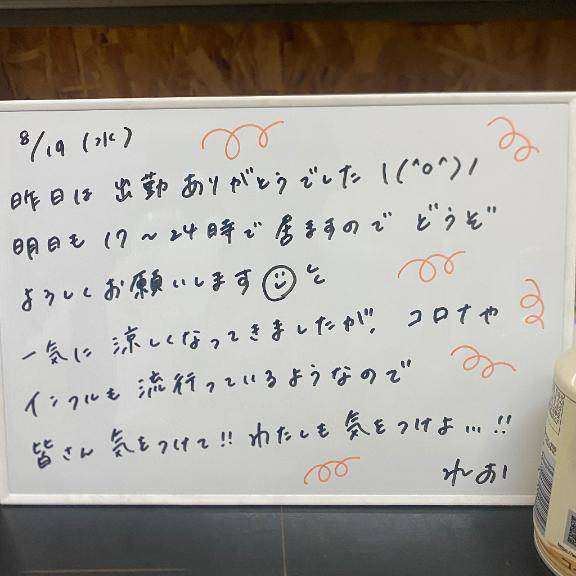 8/19 (水)
昨日は 出勤 ありがとうでした \(^o^)/
明日も 17~24時で 居ますので どうぞ
よろしくお願いします
一気に 涼しくなってきましたが、コロナや
インフルも 流行っているようなので
皆さん 気をつけて!! わたしも 気をつけよ...!!
れお